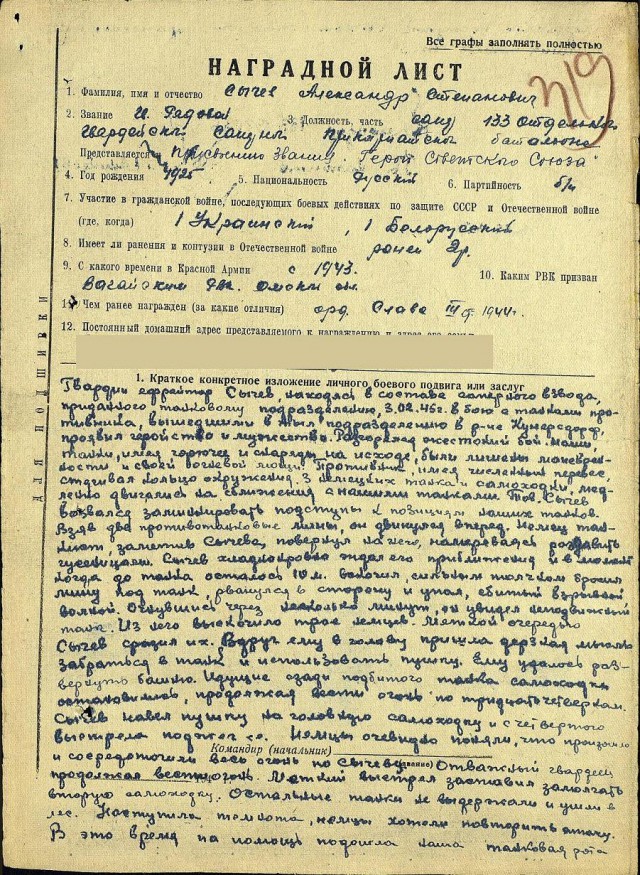 Все графы заполнять полностью
НАГРАДНОЙ ЛИСТ
319
1. Фамилия, имя и отчество Сычев Александр Степанович
2. Звание Рядовой 3. Должность, часть 133 Отдельн
Гвардейск Прикарпатског батальона
Представляется к званию „Герой Советского Союза"
4. Год рождения 1925 5. Национальность Русский 6. Партийность б/п
7. Участие в гражданской войне, последующих боевых действиях по защите СССР и Отечественной войне
(где, когда) 1 Украинский, 1 Белорусский
8. Имеет ли ранения и контузии в Отечественной войне
9. С какого времени в Красной Армии с 1943. 10. Каким РВК призван
Вагайским обл.
11. Чем ранее награжден (за какие отличия) орд. Слава III ст. 1944 г.
12. Постоянный домашний адрес представляемого к награждению и адрес его семьи
ДЛЯ ПОДШИВКИ
1. Краткое конкретное изложение личного боевого подвига или заслуг
Гвардии ефрейтор Сычев, находясь в составе саперного взвода,
приданного танковому подразделению, 3.02.45г. в бою с танками про-
тивника, вышедшими в тыл подразделению в р-не Кунерсдорф,
проявил геройство и мужество. Разгорелся ожестокий бой. Наши
танки, имея горючее и снаряды на исходе, были лишены маневрен-
ности и своей огневой мощи. Противник, имея численный перевес,
кольцо окружения. 3 немецких танка и самоходки, мед-
ленно двигались на сближение с нашими танками. Тов. Сычев
вызвался заминировать подступы к позициям наших танков.
Взяв две противотанковые мины, он двинулся вперед. Немец тан-
кист, заметив Сычева, повернул на него, намереваясь раздавить
гусеницами. Сычев хладнокровно ждал его приближения и в момент
когда до танка осталось 10 м. вскочил, сильным толчком бросил
мину под танк, рванулся в сторону и упал, сбитый взрывной
волной. Очнувшись через несколько минут, он увидел неподвижный
танк. Из него выскочило трое немцев. Меткой очередью
Сычев сразил их. Вдруг ему в голову пришла дерзкая мысль
забраться в танк и использовать пушку. Ему удалось раз-
вернуть башню. Идущие сзади подбитого танка самоходки
остановились, продолжая вести огонь по тридцатьчетверкам.
Сычев навел пушку на головную самоходку и с четвертого
выстрела поджег ее. Немцы очевидно поняли, что произошло
Командир (начальник)
и сосредоточили весь огонь по Сычеву. (звание) Отважный гвардеец
продолжал вести огонь. Меткий выстрел заставил замолчать
вторую самоходку. Остальные танки не выдержали и ушли в
лес. Наступила темнота, немцы хотели повторить атаку.
В это время на помощь подошла наша танковая рота